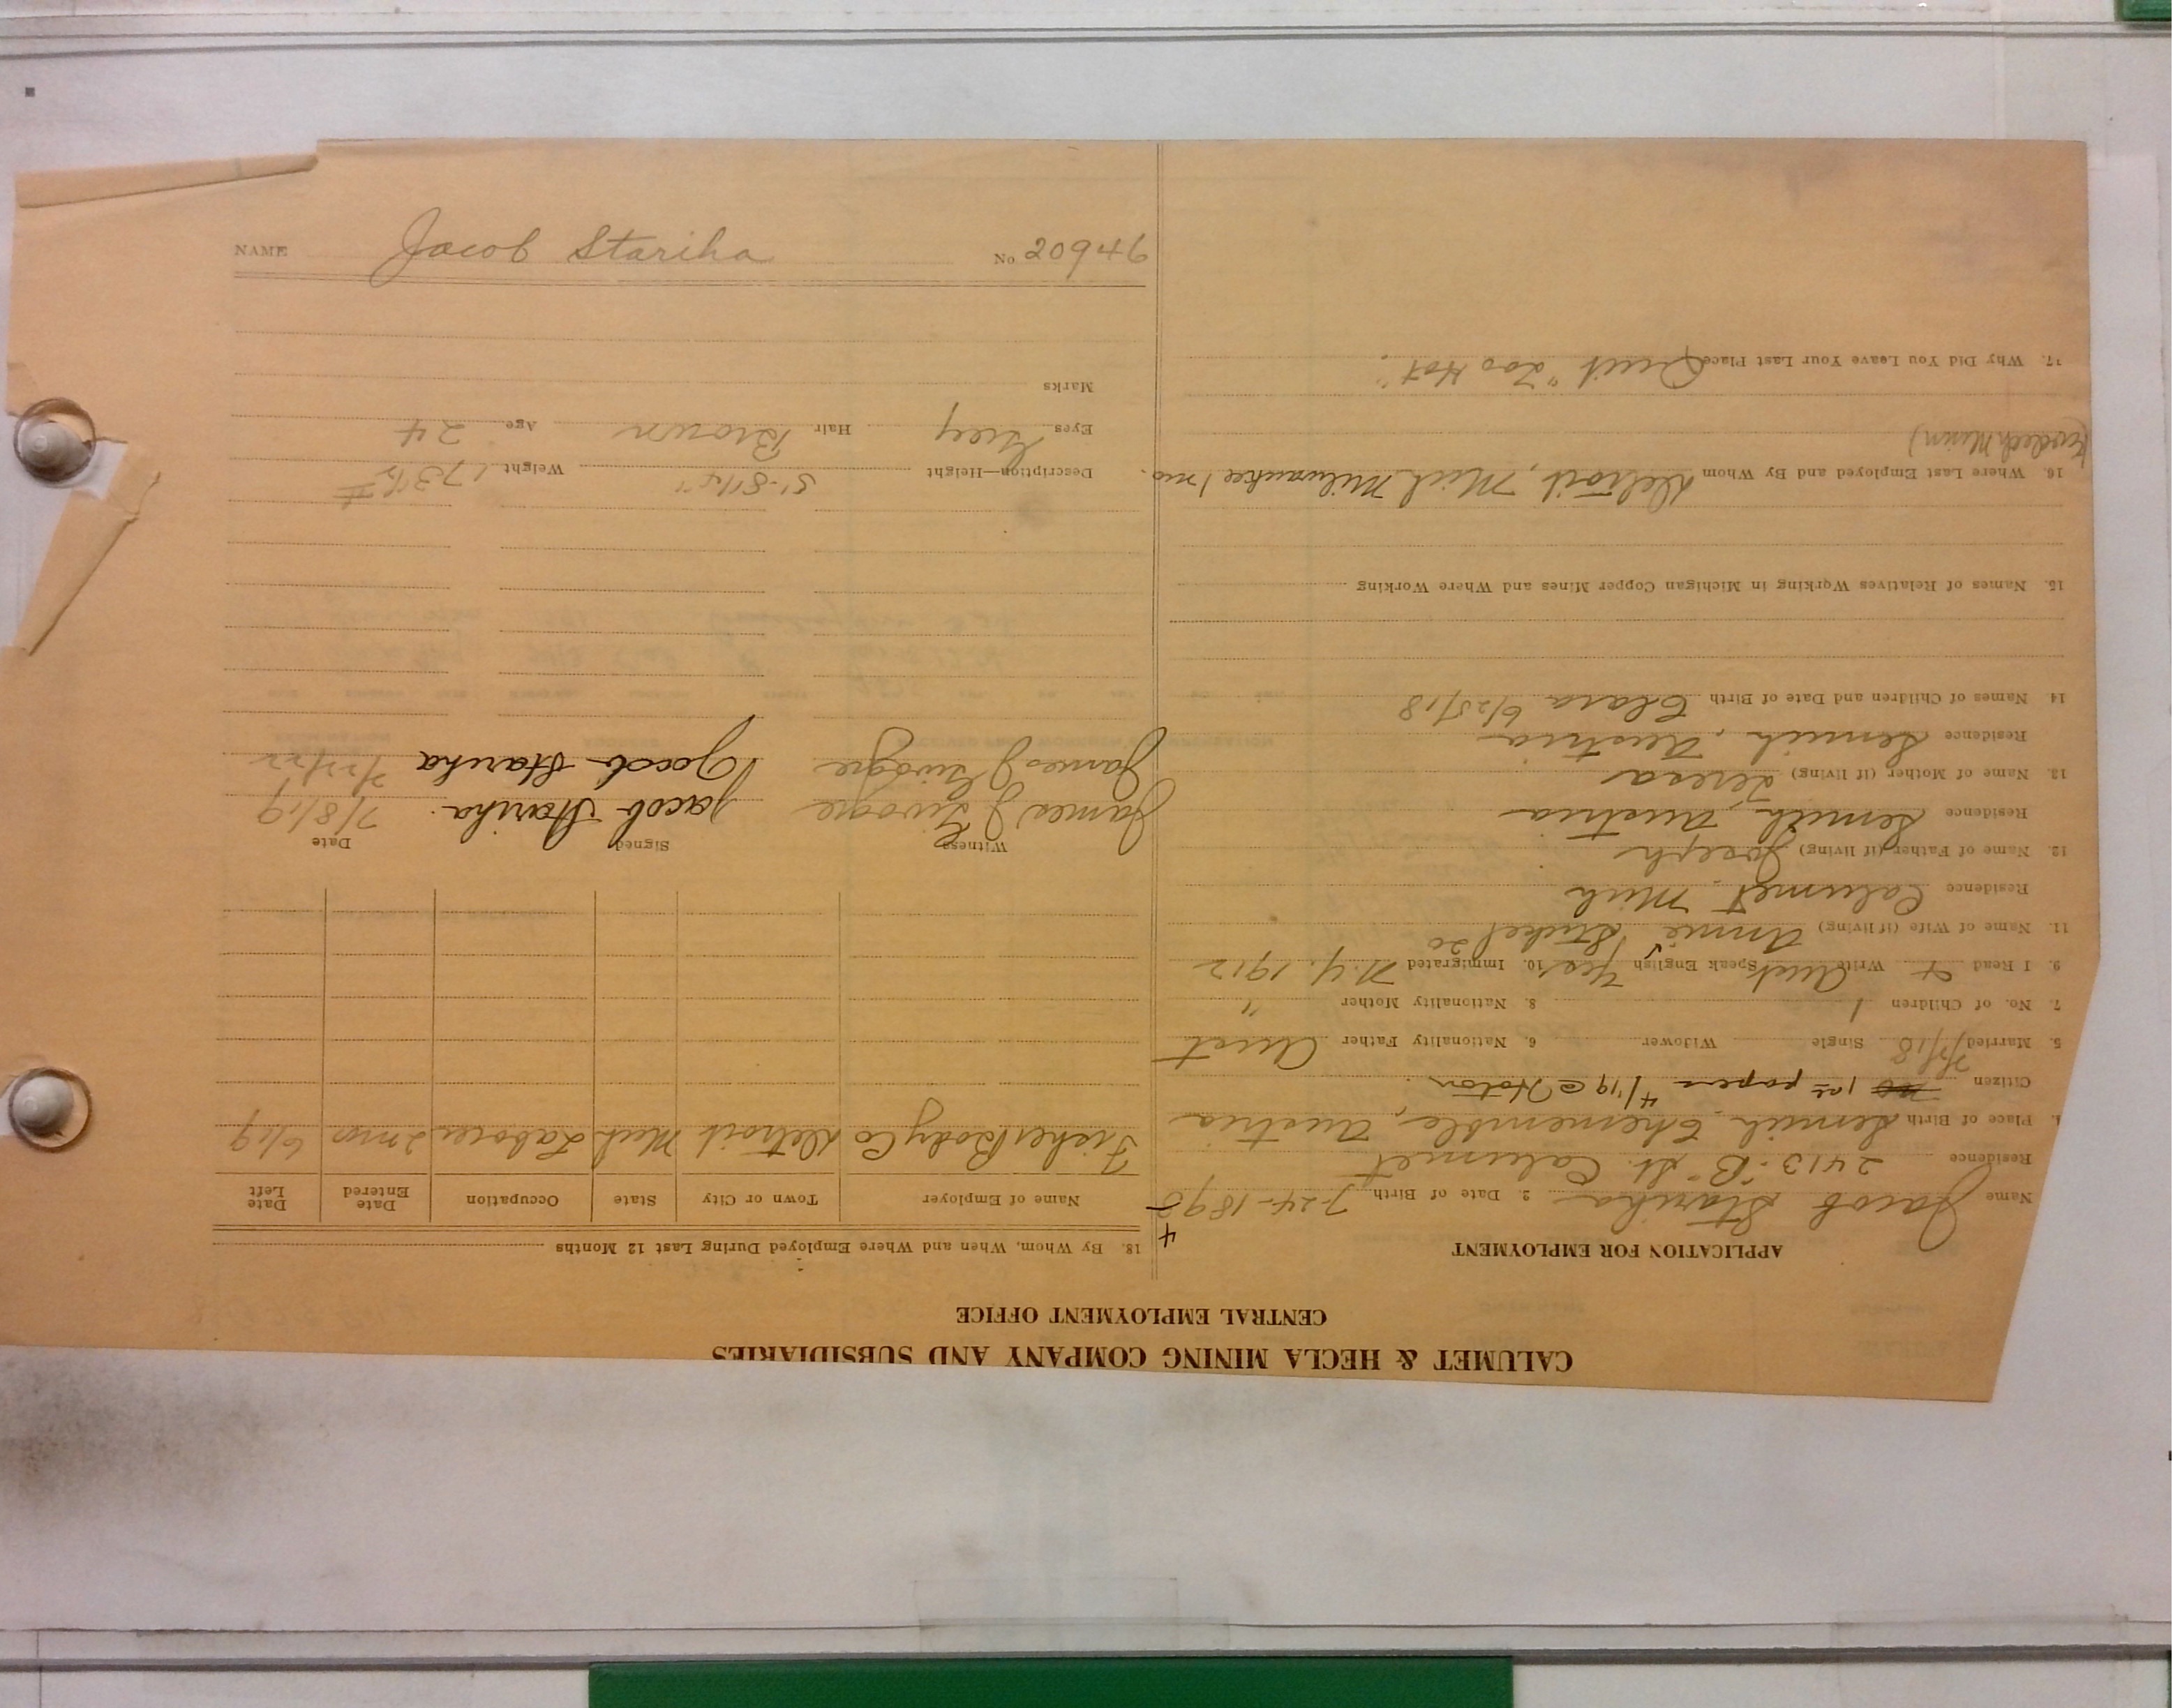 CALUMET & HECLA MINING COMPANY AND SUBSIDIARIES
CENTRAL EMPLOYMENT OFFICE
APPLICATION FOR EMPLOYMENT
Name Jacob Stariha 2. Date of Birth 7-24-1895
4
Residence 2413 "B" St. Calumet
4. Place of Birth Semich, Chernemble, Austria
Citizen no 1st papers 4/19 @ Hoton
5. Married 7/7/18 Single Widower 6. Nationality Father Aust
7. No. of Children 1 8. Nationality Mother "
9. I Read + Write Aust Speak English Yes 10. Immigrated N.Y. 1912
11. Name of Wife (if living) Annie Stukel 20
Residence Calumet Mich
12. Name of Father (if living) Joseph
Residence Semich, Austria
13. Name of Mother (if living) Teresa
Residence Semich, Austria
14 Names of Children and Date of Birth Clara 6/25/18
15. Names of Relatives Working in Michigan Copper Mines and Where Working
16. Where Last Employed and By Whom Detroit, Mich Milwaukee 1 mo.
17. Why Did You Leave Your Last Place Quit "Too Hot".
18. By Whom, When and Where Employed During Last 12 Months
Name of Employer Town or City State Occupation Date Entered Date Left
Fisher Body Co Detroit Mich Laborer 2 mos 6/19
Witness Signed Date
James J Jacob Stariha. 7/8/19
James J Jacob Stariha
Description—Height 5'-8 1/4" Weight 173 1/2 #
Eyes Grey Hair Brown Age 24
Marks
NAME Jacob Stariha No 20946